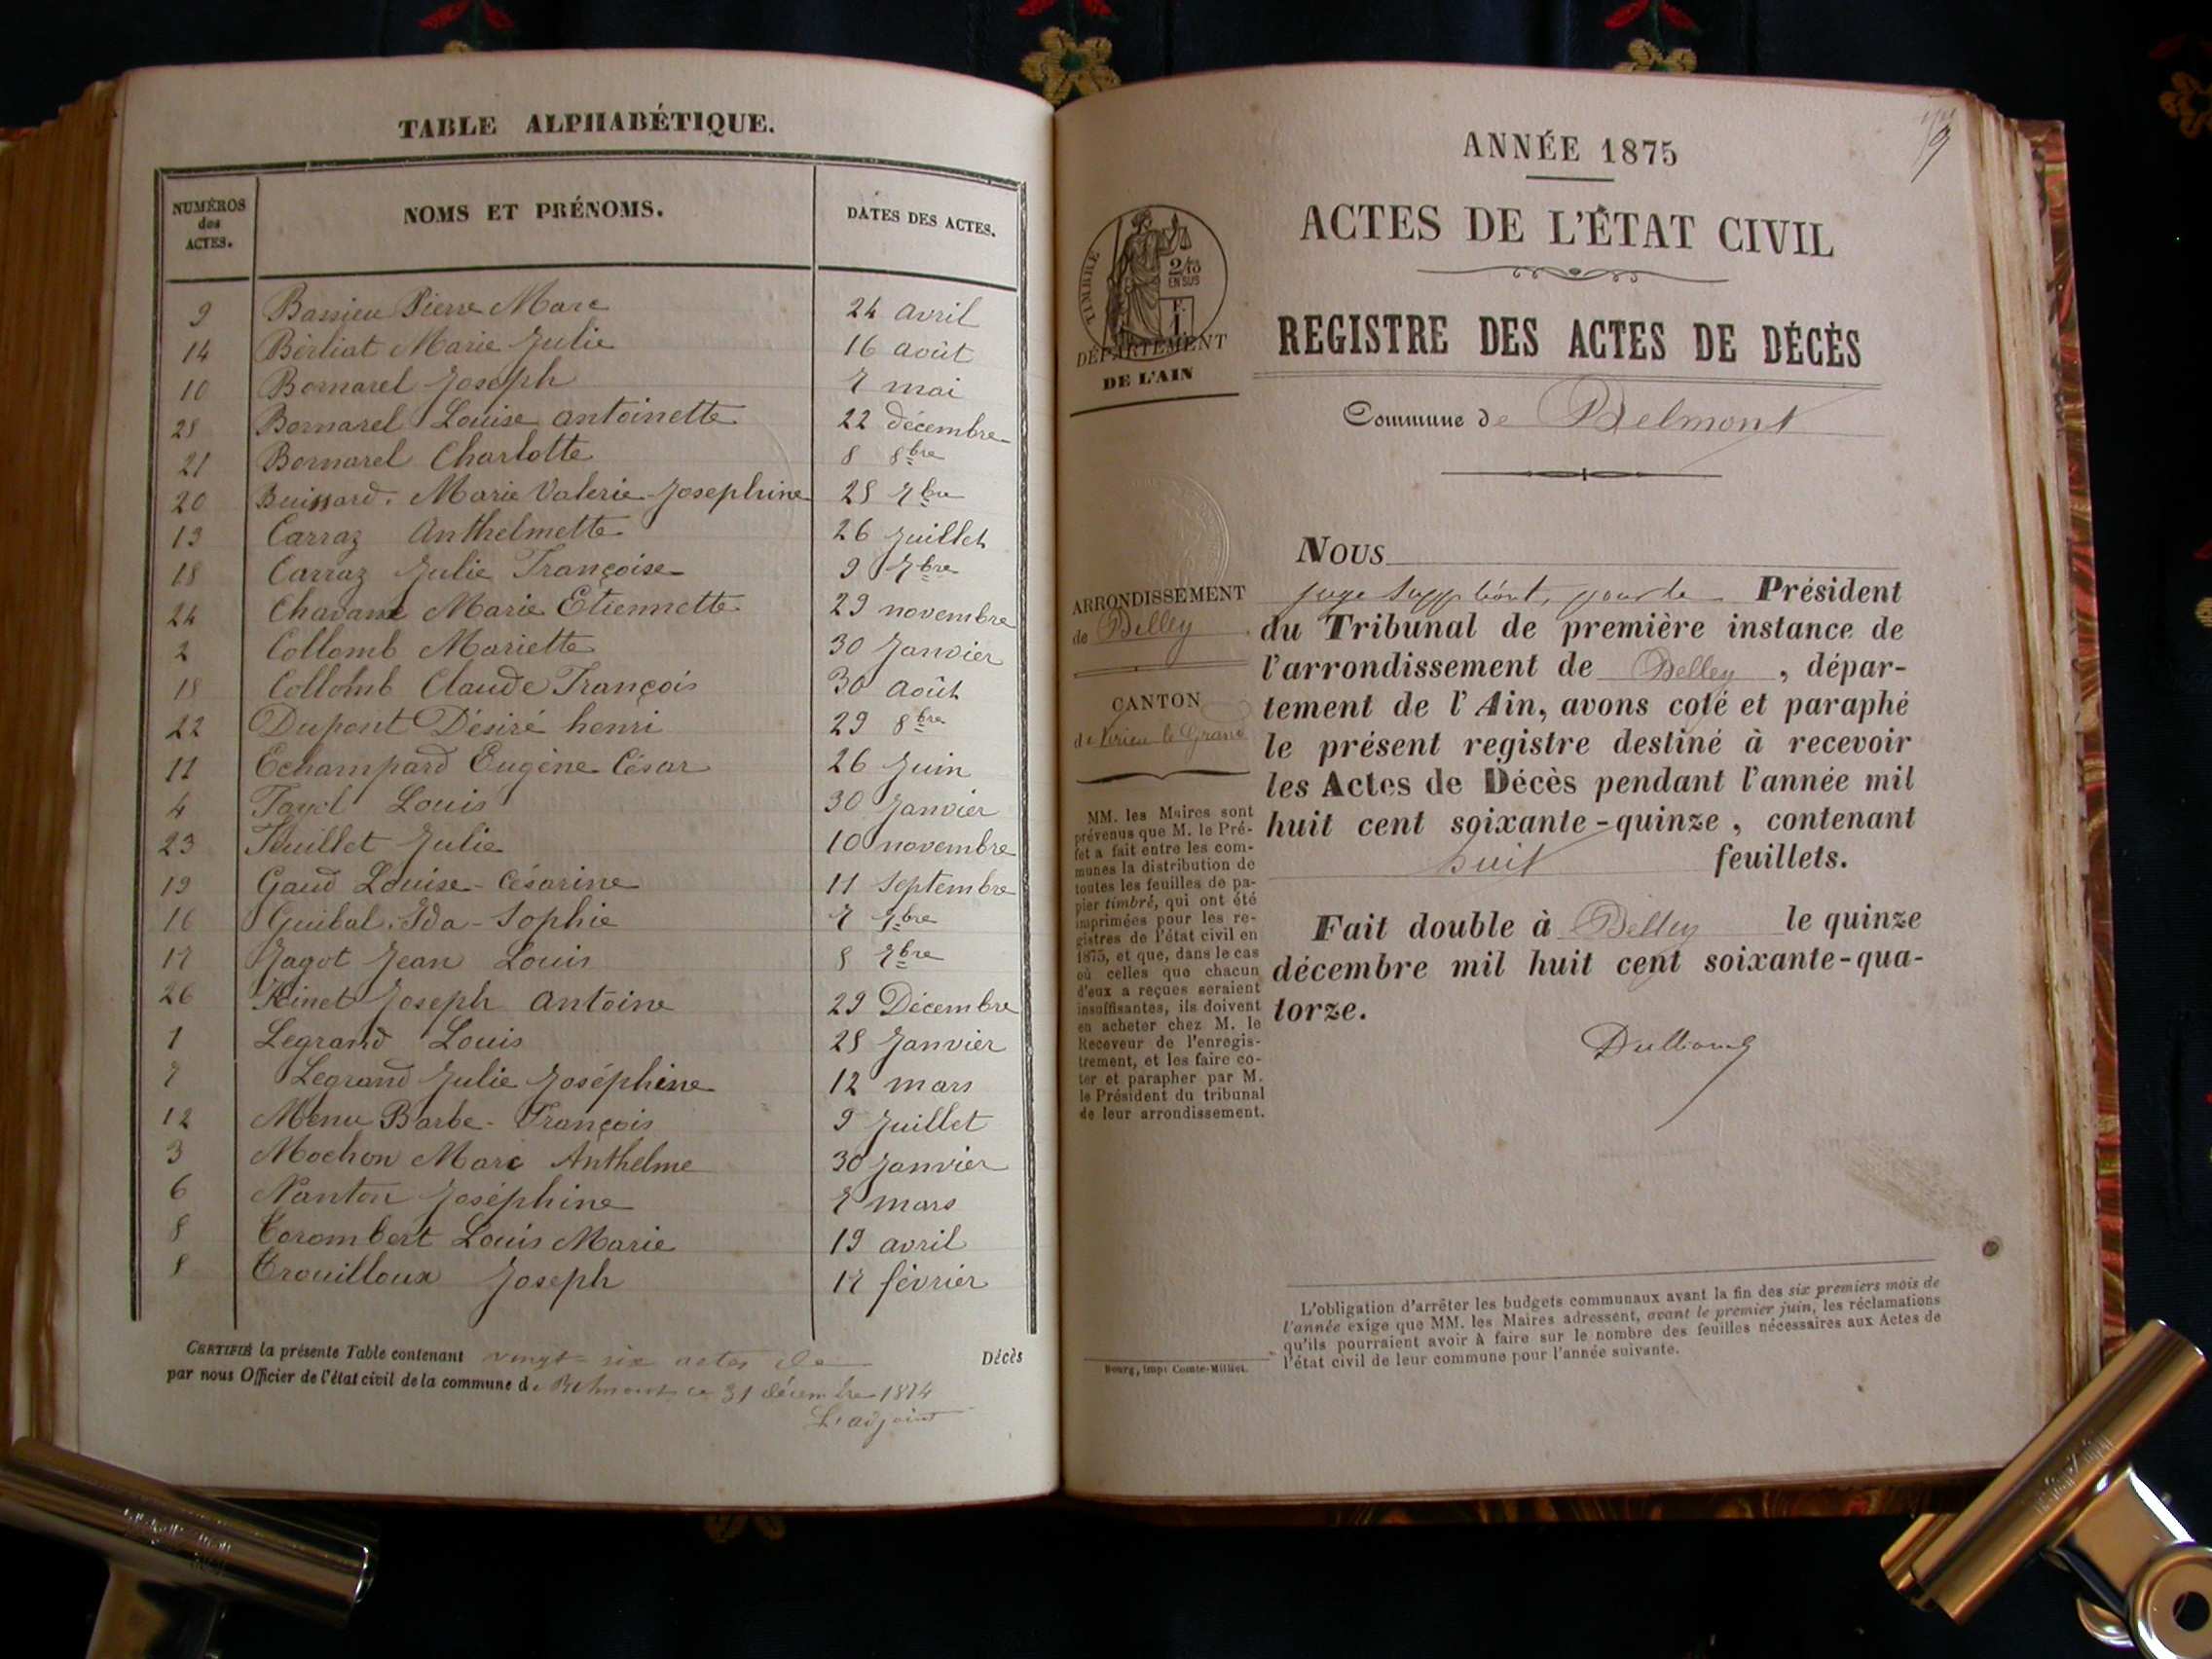 TABLE ALPHABÉTIQUE.
NUMÉROS des ACTES. NOMS ET PRÉNOMS. DATES DES ACTES.
9 Bassieu Pierre Marc 24 avril
14 Berliat Marie Julie 16 août
10 Bornarel Joseph 7 mai
25 Bornarel Louise antoinette 22 décembre
21 Bornarel Charlotte 8 8bre
20 Buissard. Marie Valerie Josephine 25 7bre
13 Carraz Anthelmette 26 Juillet
18 Carraz Julie Françoise 9 7bre
24 Chavane Marie Etiennette 29 novembre
2 Collomb Mariette 30 Janvier
15 Collomb Claude François 30 août
22 Dupont Désiré henri 29 8bre
11 Echampard Eugène César 26 Juin
4 Fayol Louis 30 Janvier
23 Feuillet Julie 10 novembre
19 Gaud Louise-Césarine 11 Septembre
16 Guibal. Ida-Sophie 7 7bre
17 Jagot Jean Louis 8 7bre
26 Kinet Joseph antoine 29 Décembre
1 Legrand Louis 25 Janvier
7 Legrand Julie Joséphine 12 mars
12 Menu Barbe-François 9 Juillet
3 Mochon Marc Anthelme 30 Janvier
6 Nanton Joséphine 7 mars
8 Corombert Louis Marie 19 avril
Crouilloux Joseph 17 février
CERTIFIÉ la présente Table contenant vingt-six actes de Décès
par nous Officier de l'état civil de la commune de Belmont ce 31 décembre 1874
L'adjoint
ANNÉE 1875
ACTES DE L'ÉTAT CIVIL
REGISTRE DES ACTES DE DÉCÈS
Commune de Belmont
TIMBRE
2/10
EN SUS
DÉPARTEMENT
DE L'AIN
ARRONDISSEMENT
de Belley
CANTON
de Virieu le Grand
MM. les Maires sont
prévenus que M. le Pré-
fet a fait entre les com-
munes la distribution de
toutes les feuilles de pa-
pier timbré, qui ont été
imprimées pour les re-
gistres de l'état civil en
1875, et que, dans le cas
où celles que chacun
d'eux a reçues seraient
insuffisantes, ils doivent
en acheter chez M. le
Receveur de l'enregis-
trement, et les faire co-
ter et parapher par M.
le Président du tribunal
de leur arrondissement.
NOUS
juge Suppléant, pour le Président
du Tribunal de première instance de
l'arrondissement de Belley, dépar-
tement de l'Ain, avons coté et paraphé
le présent registre destiné à recevoir
les Actes de Décès pendant l'année mil
huit cent soixante-quinze, contenant
huit feuillets.
Fait double à Belley le quinze
décembre mil huit cent soixante-qua-
torze.
L'obligation d'arrêter les budgets communaux avant la fin des six premiers mois de
l'année exige que MM. les Maires adressent, avant le premier juin, les réclamations
qu'ils pourraient avoir à faire sur le nombre des feuilles nécessaires aux Actes de
l'état civil de leur commune pour l'année suivante.
Bourg, imp. Comte-Milliet.